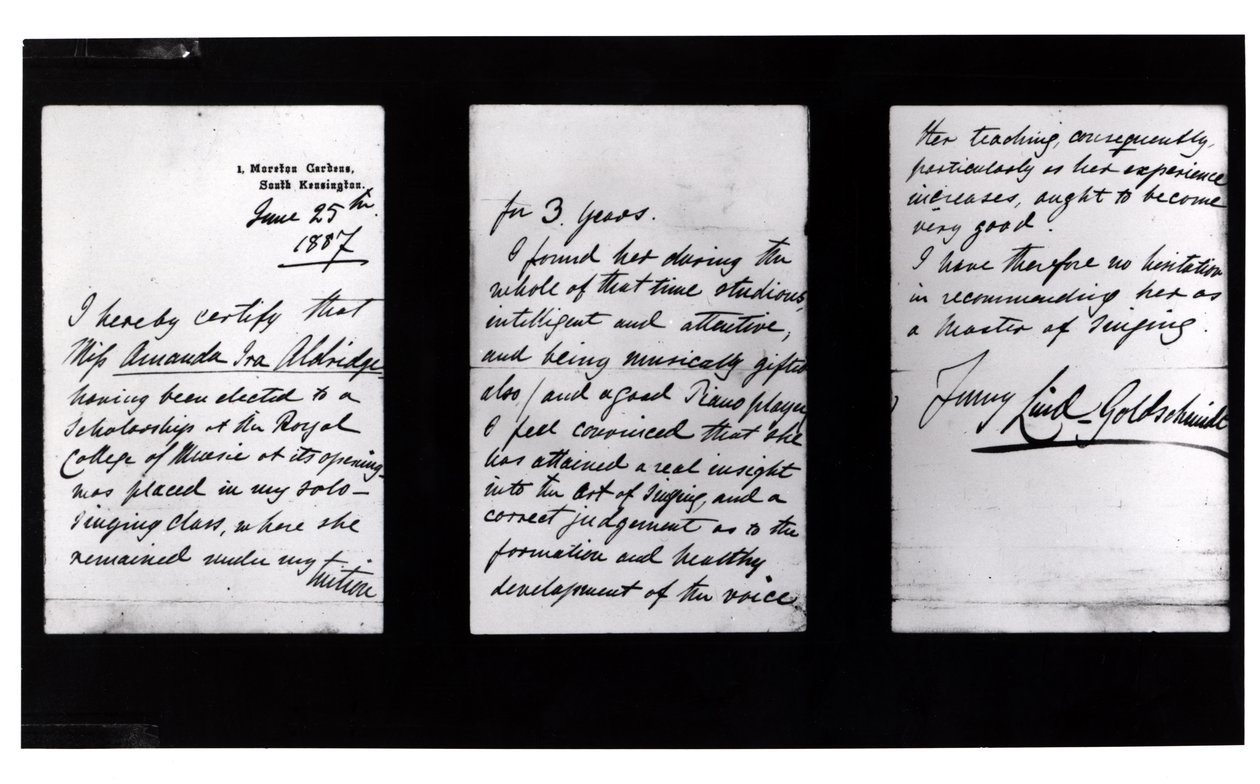 1, Moreton Gardens,
South Kensington.
June 25th
1887
I hereby certify that
Miss Amanda Ira Aldridge
having been elected to a
Scholarship at the Royal
College of Music at its opening
was placed in my solo-
singing class, where she
remained under my
tuition
for 3 years.
I found her during the
whole of that time studious,
intelligent and attentive,
and being musically gifted
also / and a good Piano player
I feel convinced that she
has attained a real insight
into the Art of Singing, and a
correct judgement as to the
formation and healthy
development of the voice.
Her teaching, consequently,
particularly as her experience
increases, ought to become
very good.
I have therefore no hesitation
in recommending her as
a Master of Singing.
Jenny Lind-Goldschmidt